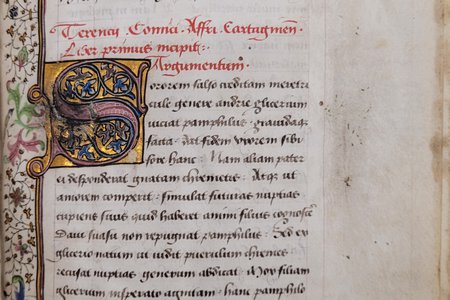 Terencij Comici Affri Cartaginen̄.
Liber primus incipit:
Argumentum.
Sororem falso creditam meretri
cule genere andrie glicerium
uiciat pamphilus. grauidaqꝫ
facta. dat fidem vxorem sibi
fore hanc: Nam aliam pater
ei desponderat gnatam chremetis: Atqꝫ ut
amorem comperit: simulat futuras nuptias
cupiens suus quid haberet animi filius cognosce͛
Daui suasu non repugnat pamphilus: Sed ex
glicerio natum ut uidit puerulum chremes
recusat nuptias generum abdicat: Mox filiam
glicerium insperato agnitam: hanc pamphilo